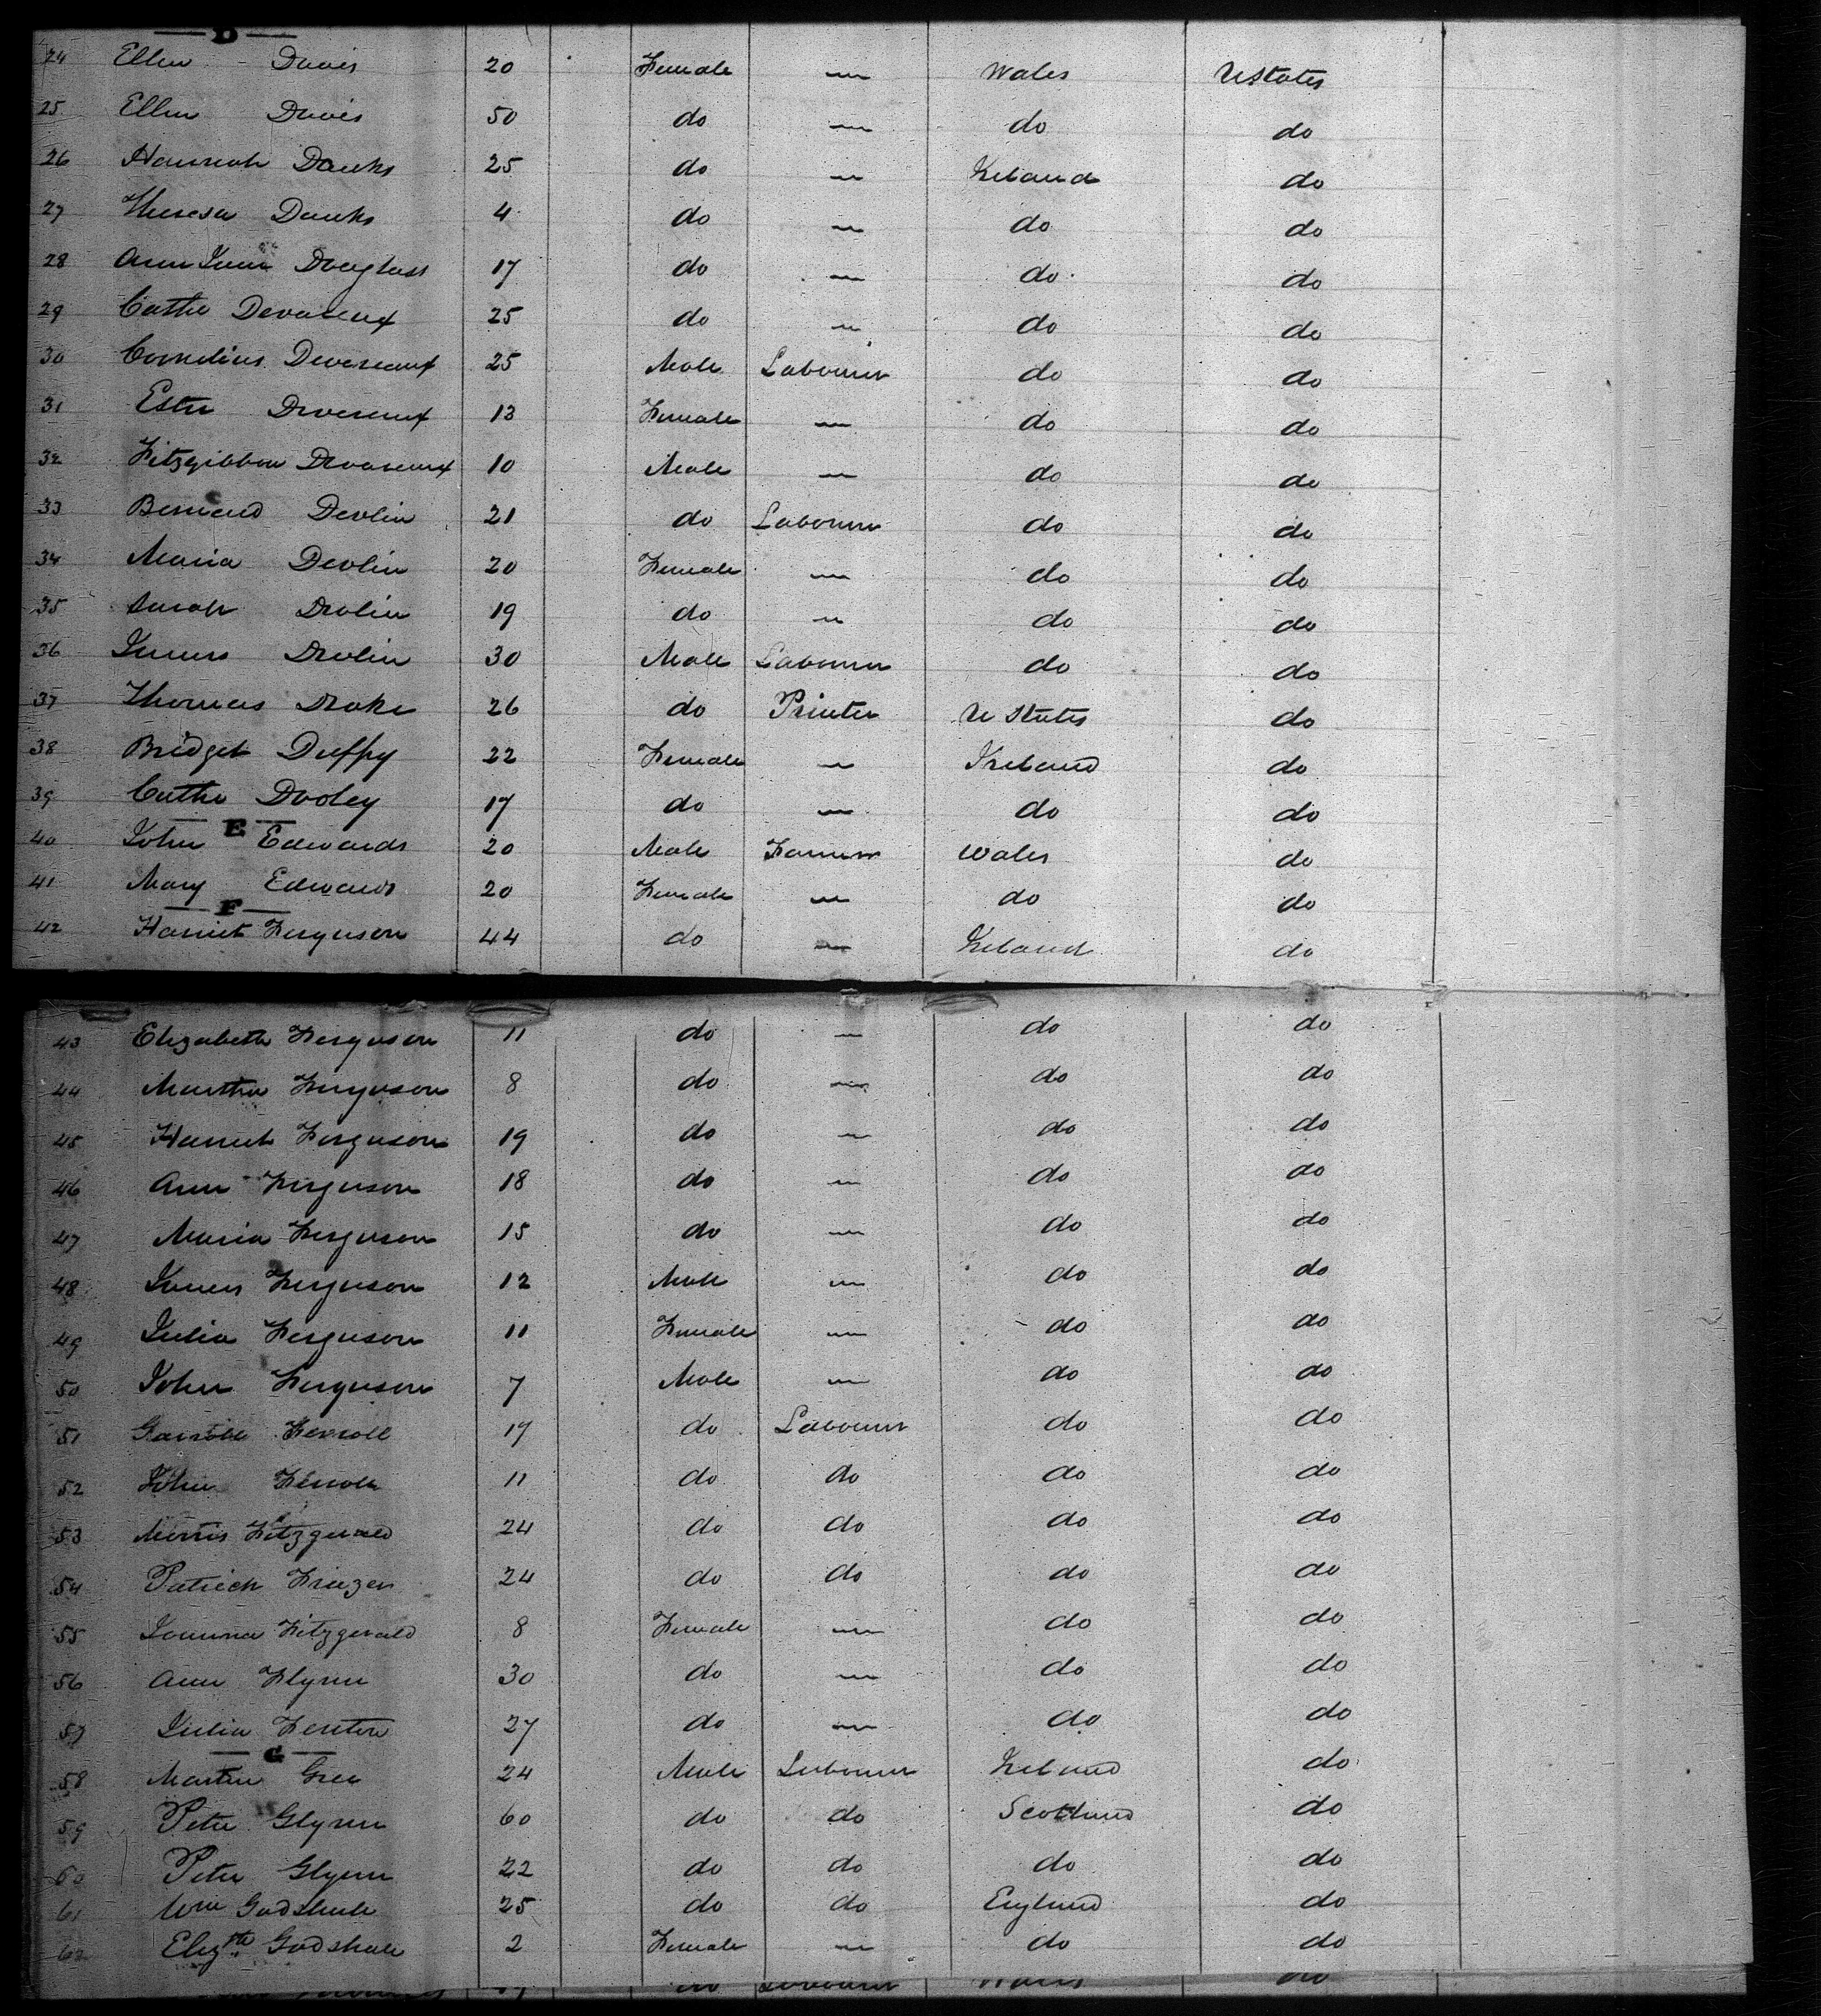 — D —
24 Ellen Davis 20 Female — Wales U States
25 Ellen Davis 50 do — do do
26 Hannah Danks 25 do — Ireland do
27 Theresa Danks 4 do — do do
28 Ann Jane Douglass 17 do — do do
29 Cathe Devereux 25 do — do do
30 Cornelius Devereaux 25 Male Labourer do do
31 Ester Devereux 13 Female — do do
32 Fitzgibbon Devereux 10 Male — do do
33 Bernard Devlin 21 do Labourer do do
34 Maria Devlin 20 Female — do do
35 Sarah Devlin 19 do — do do
36 James Devlin 30 Male Labourer do do
37 Thomas Drake 26 do Printer U States do
38 Bridget Duffy 22 Female — Ireland do
39 Cathe Dooley 17 do — do do
— E —
40 John Edwards 20 Male Farmer Wales do
41 Mary Edwards 20 Female — do do
— F —
42 Harriet Ferguson 44 do — Ireland do
43 Elizabeth Ferguson 11 do — do do
44 Martha Ferguson 8 do — do do
45 Harriet Ferguson 19 do — do do
46 Ann Ferguson 18 do — do do
47 Maria Ferguson 15 do — do do
48 James Ferguson 12 Male — do do
49 Julia Ferguson 11 Female — do do
50 John Ferguson 7 Male — do do
51 17 do Labourer do do
52 John 11 do do do do
53 Morris Fitzgerald 24 do do do do
54 Patrick 24 do do do do
55 Fitzgerald 8 Female — do do
56 Ann Flynn 30 do — do do
57 Julia Fenton 27 do — do do
— G —
58 Martin 24 Male Labourer Ireland do
59 Peter Glynn 60 do do Scotland do
60 Peter Glynn 22 do do do do
61 Wm Godshale 25 do do England do
62 Elizth Godshale 2 Female — do do